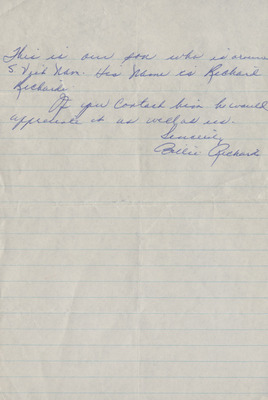 This is our son who is around
S. Viet Nam. His Name is Richard
Richards
If you Contact him he would
appreciate it as well as us.
Sincerely
Billie Richard